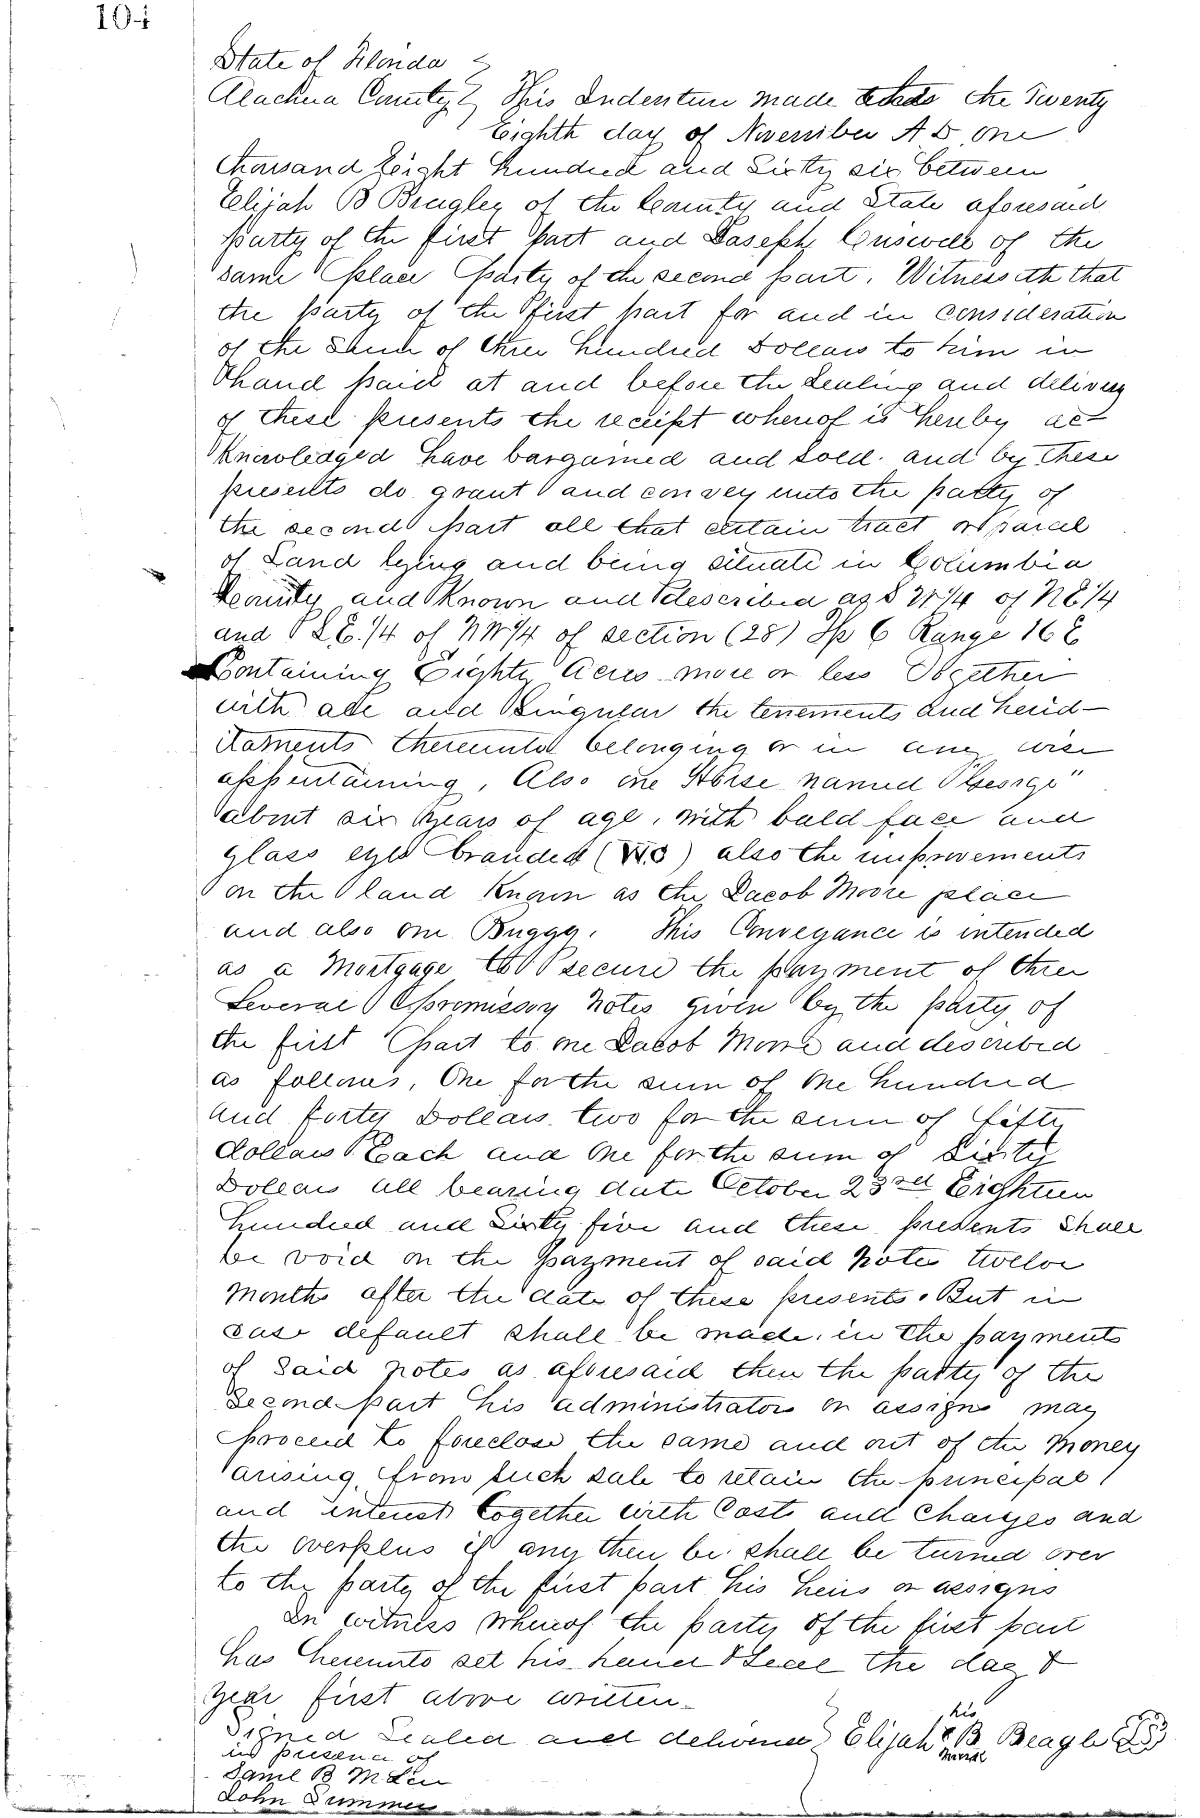 104
State of Florida
Alachua County This Indenture made the Twenty
Eighth day of November A D one
thousand Eight hundred and Sixty six between
Elijah B Beagley of the County and State aforesaid
party of the first part and Joseph Criswell of the
same place party of the second part. Witnesseth that
the party of the first part for and in consideration
of the Sum of three hundred Dollars to him in
hand paid at and before the Sealing and delivery
of these presents the receipt whereof is hereby ac-
knowledged have bargained and sold. and by these
presents do grant and convey unto the party of
the second part all that certain tract or parcel
of Land lying and being situate in Columbia
County and Known and described as S W 1/4 of N E 1/4
and S. E. 1/4 of N W 1/4 of section (28) Tp 6 Range 16 E
Containing Eighty Acres more or less Together
with all and Singular the tenements and hered-
itaments thereunto belonging or in any wise
appertaining, Also one Horse named "George"
about six years of age, with bald face and
glass eyes branded (WO) also the improvements
on the land Known as the Jacob Moore place
and also one Buggy. This Conveyance is intended
as a Mortgage to secure the payment of three
Several Promissory Notes given by the party of
the first Part to one Jacob Moore and described
as follows, One for the sum of One hundred
and forty Dollars two for the sum of fifty
dollars Each and One for the sum of Sixty
Dollars all bearing date October 23rd Eighteen
hundred and Sixty five and these presents Shall
be void on the payment of said Notes twelve
Months after the date of these presents. But in
case default shall be made, in the payments
of Said notes as aforesaid then the party of the
Second part his administrators or assigns may
proceed to foreclose the same and out of the Money
arising from such sale to retain the principal
and interest together with Costs and Charges and
the overplus if any then be shall be turned over
to the party of the first part his heirs or assigns
In witness whereof the party of the first part
has hereunto set his hand & Seal the day &
year first above written.
Signed Sealed and delivered Elijah his x mark B Beagle LS
in presence of
Saml B McLin
John Summer